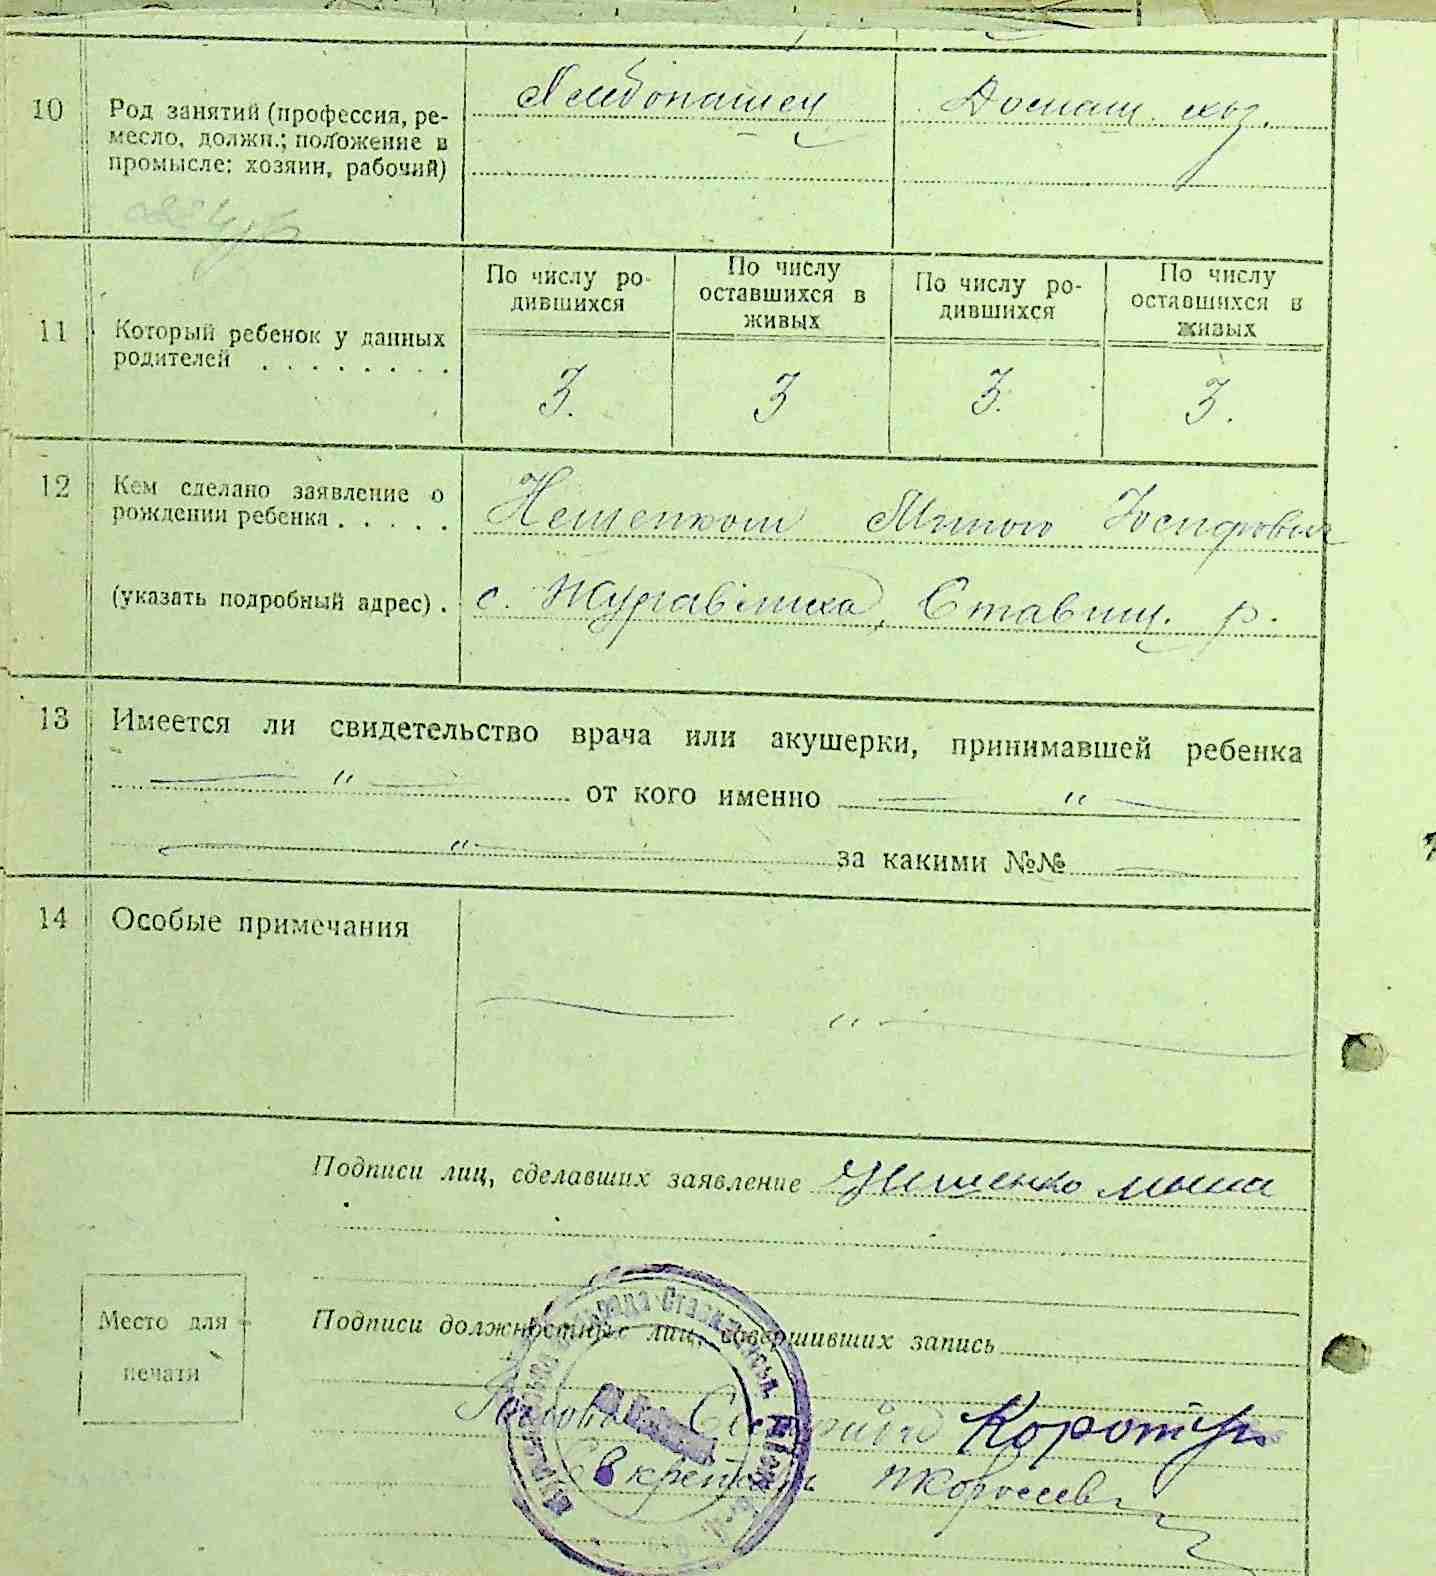 10 Род занятий (профессия, ре-
месло, должн.; положение в
промысле: хозяин, рабочий)
Хлебопашец
Домашн. хоз.
11 Который ребенок у данных
родителей . . . . . . . .
По числу ро-
дившихся
По числу
оставшихся в
живых
По числу ро-
дившихся
По числу
оставшихся в
живых
3. 3 3. 3.
12 Кем сделано заявление о
рождении ребенка . . . . .
(указать подробный адрес) .
с. Журавлиха, Ставищ. р.
13 Имеется ли свидетельство врача или акушерки, принимавшей ребенка
— " — от кого именно — " —
— " — за какими №№ —
14 Особые примечания
— " —
Подписи лиц, сделавших заявление
Место для
печати
Подписи должностных лиц, совершивших запись
Голова Сельради
Секретарь